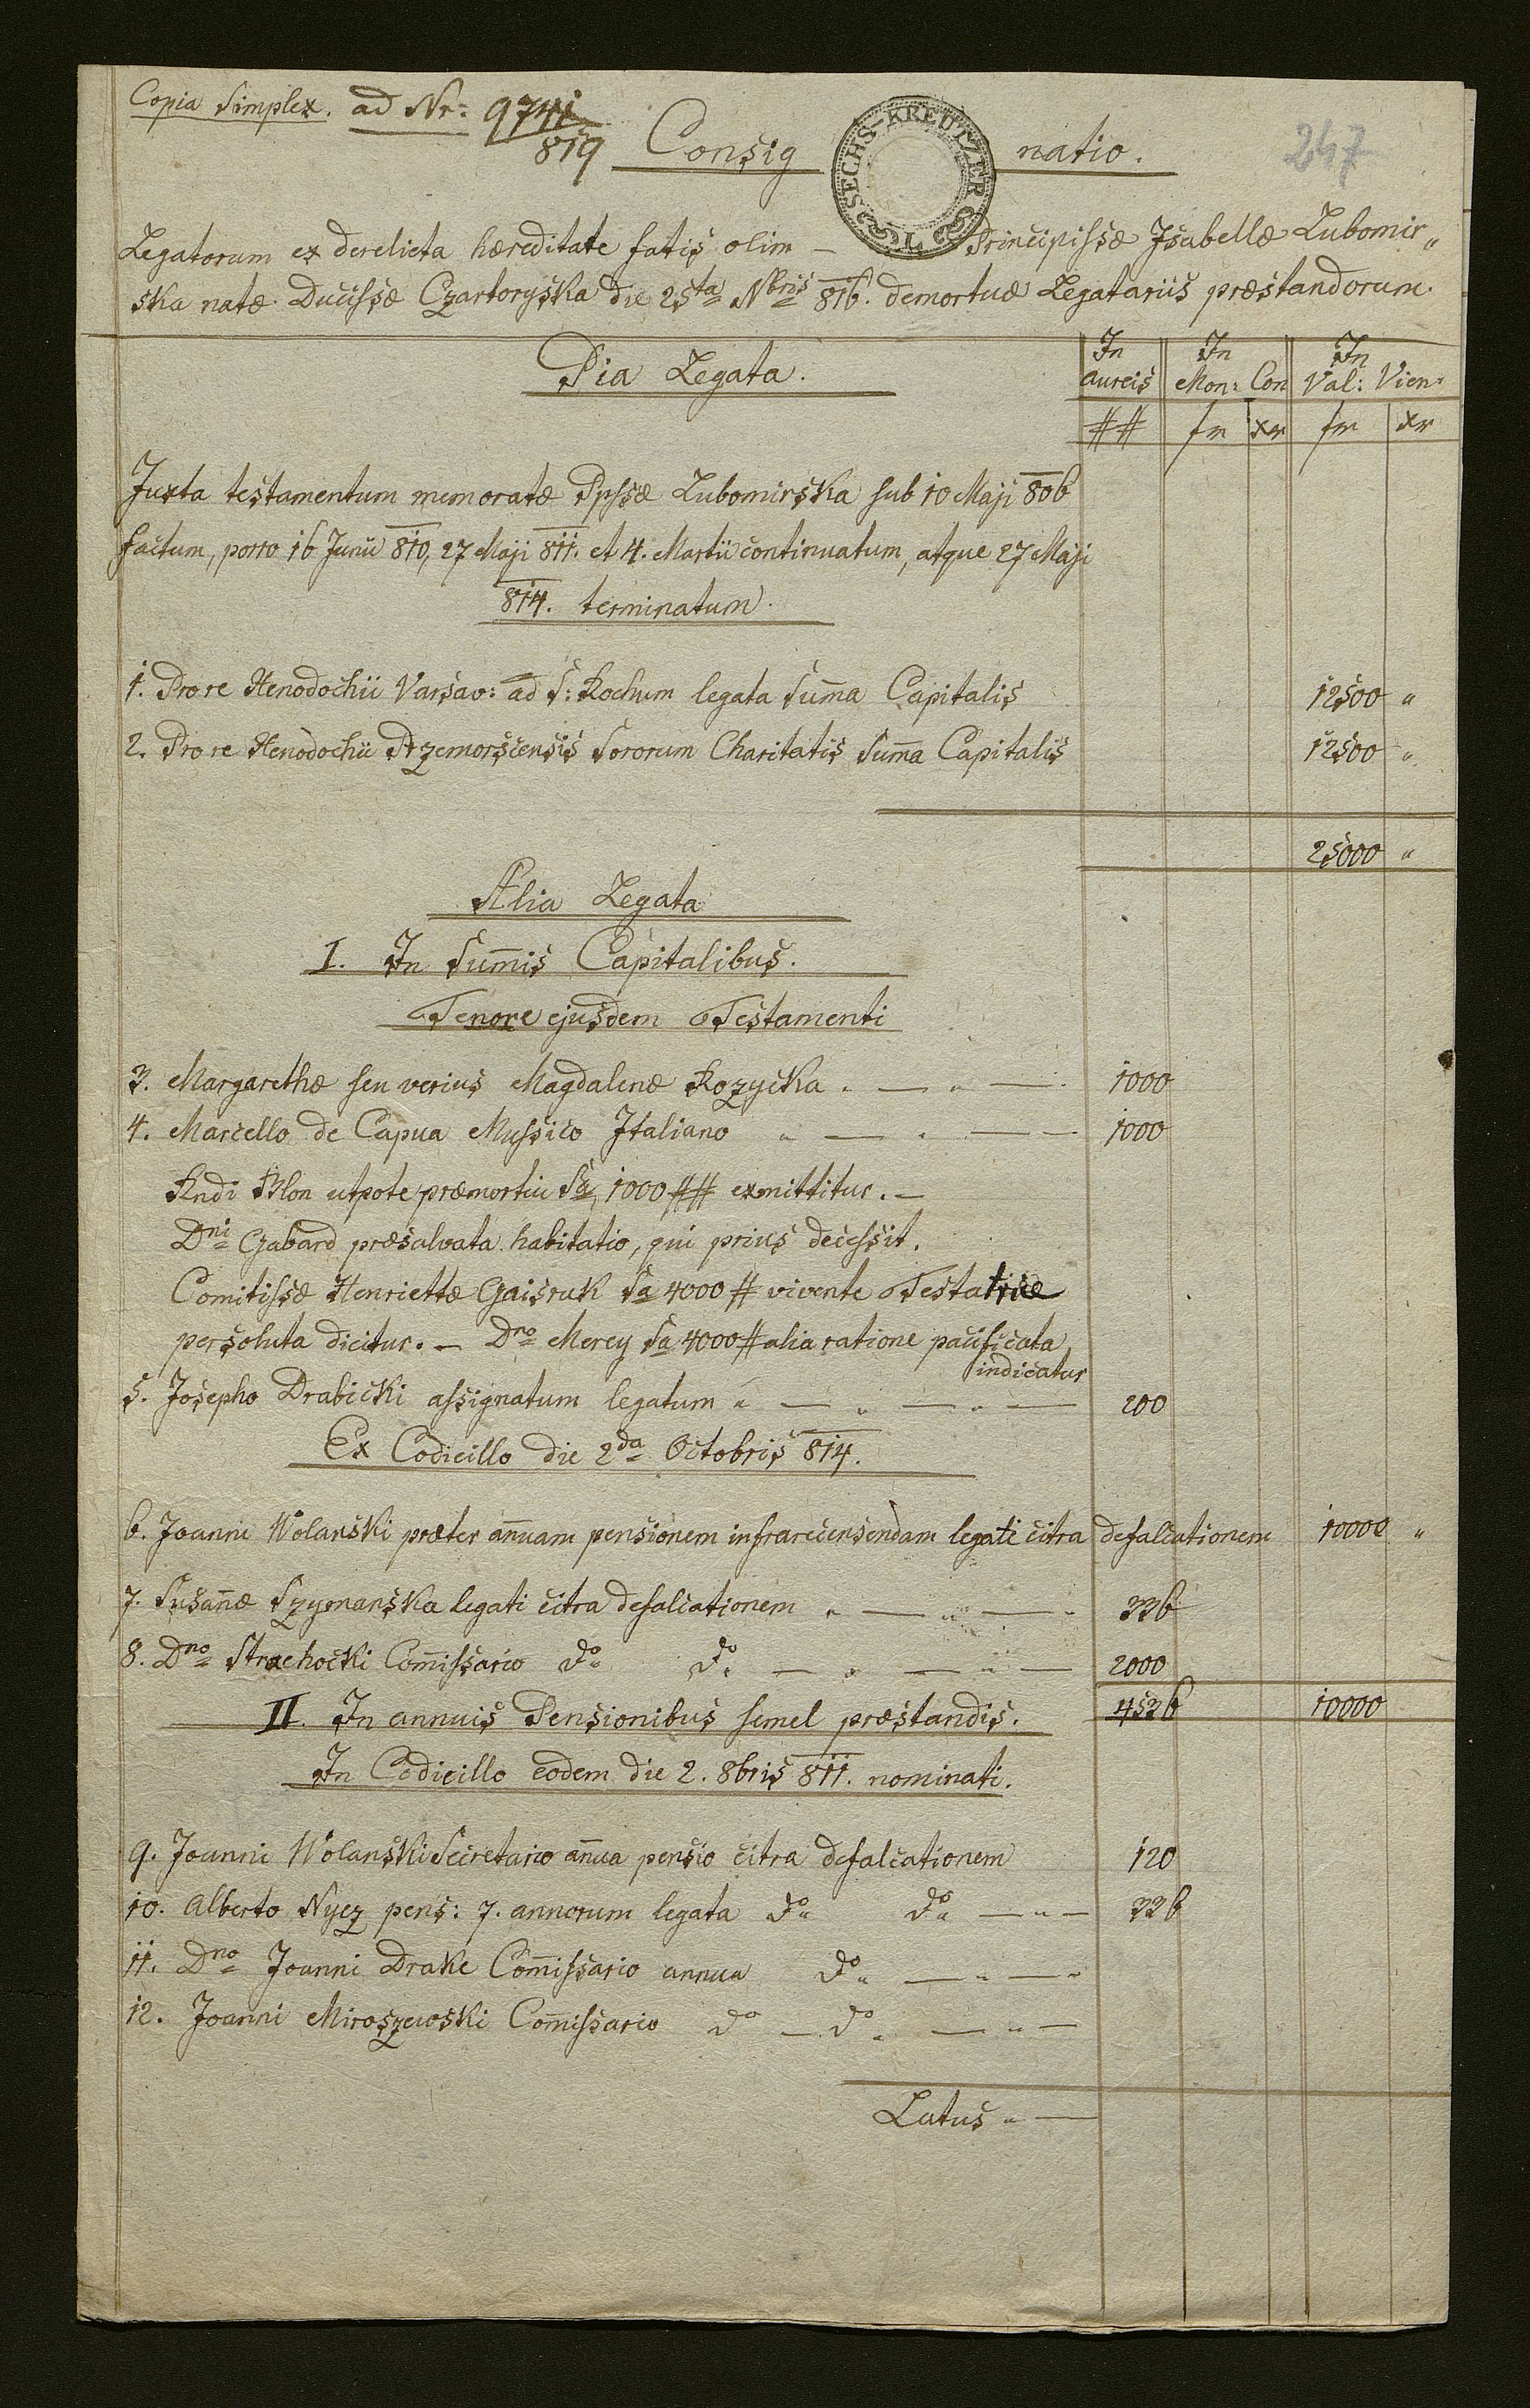 Copia Simplex. ad Nr: 9741/819
247
Consig natio.
SECHS-KREUTZER
Legatorum ex derelicta hæreditate fatis olim — Principissæ Isabellæ Lubomir„
ska natæ Ducissæ Czartoryska die 25ta Nbris 816. demortuæ Legatariis præstandorum.
Pia Legata.
In aureis | In Mon: Con | In Val: Vien:
## | fr | xr | fr | xr
Juxta testamentum memoratæ Ppssæ Lubomirska sub 10 Maji 806
factum, porro 16 Junii 810, 27 Maji 811. et 4. Martii continuatum, atque 27 Maji
814. terminatum.
1. Pro re Xenodochii Varsav: ad S: Rochum legata Summa Capitalis 12500 "
2. Pro re Xenodochii Przemorscensis Sororum Charitatis Summa Capitalis 12500 "
25000 "
Alia Legata
I. In Summis Capitalibus.
Tenore ejusdem Testamenti
3. Margarethæ seu verius Magdalenæ Rozycka . — " — . 1000
4. Marcello de Capua Mussico Italiano " — . — — 1000
Rndi Blon utpote præmortui Sa 1000 ## exmittitur. —
Dni Gabard præsalvata habitatio, qui prius decessit.
Comitissæ Henriettæ Gaisruk Sa 4000 # vivente Testatrice
persoluta dicitur. — Dno Mercy Sa 4000 # alia ratione pacificata
indicatur
5. Josepho Drabicki assignatum legatum " — " — " — 200
Ex Codicillo die 2da Octobris 814.
6. Joanni Wolanski præter annuam pensionem infrarecensendam legati citra defalcationem 10000 "
7. Susannæ Szymanska legati citra defalcationem " — " — " 336
8. Dno Strachocki Commissario do do — " — " — 2000
4536 10000
II. In annuis Pensionibus semel præstandis.
In Codicillo eodem die 2. 8bris 811. nominati.
9. Joanni Wolanski Secretario annua pensio citra defalcationem 120
10. Alberto Nyez pens: 7. annorum legata do do — " — 336
11. Dno Joanni Drake Commissario annua do — " — "
12. Joanni Miroszewski Commissario do — do — " —
Latus " —